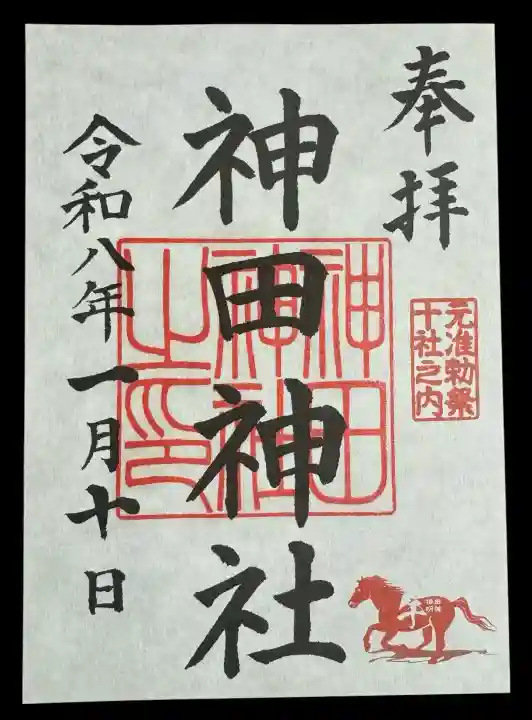 奉拝
元准勅祭
十社之内
神田神社
神田
神社
之印
令和八年一月十日